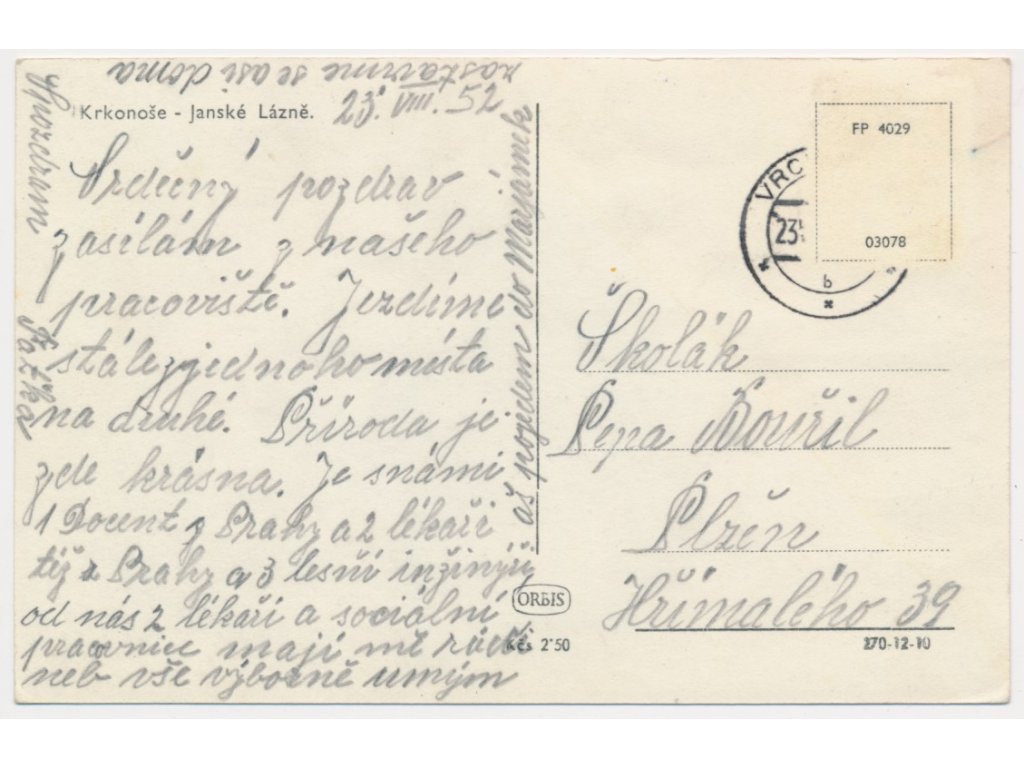 Krkonoše - Janské Lázně.
23. VIII. 52
Srdečný pozdrav
zasílám z našeho
pracoviště. Jezdíme
stále z jednoho místa
na druhé. Příroda je
zde krásna. Je s námi
1 Docent z Prahy a 2 lékaři
též z Prahy a 3 lesní inžinýři
od nás 2 lékaři a sociální
pracovnice mají mě rádi
neb vše výborně umým
až pojedem do Marjánek
zastavíme se asi doma
FP 4029
03078
VRC
23
b
Školák
Pepa Bouřil
Plzeň
Hřímalého 39
ORBIS
Kčs 2·50
270-12-10